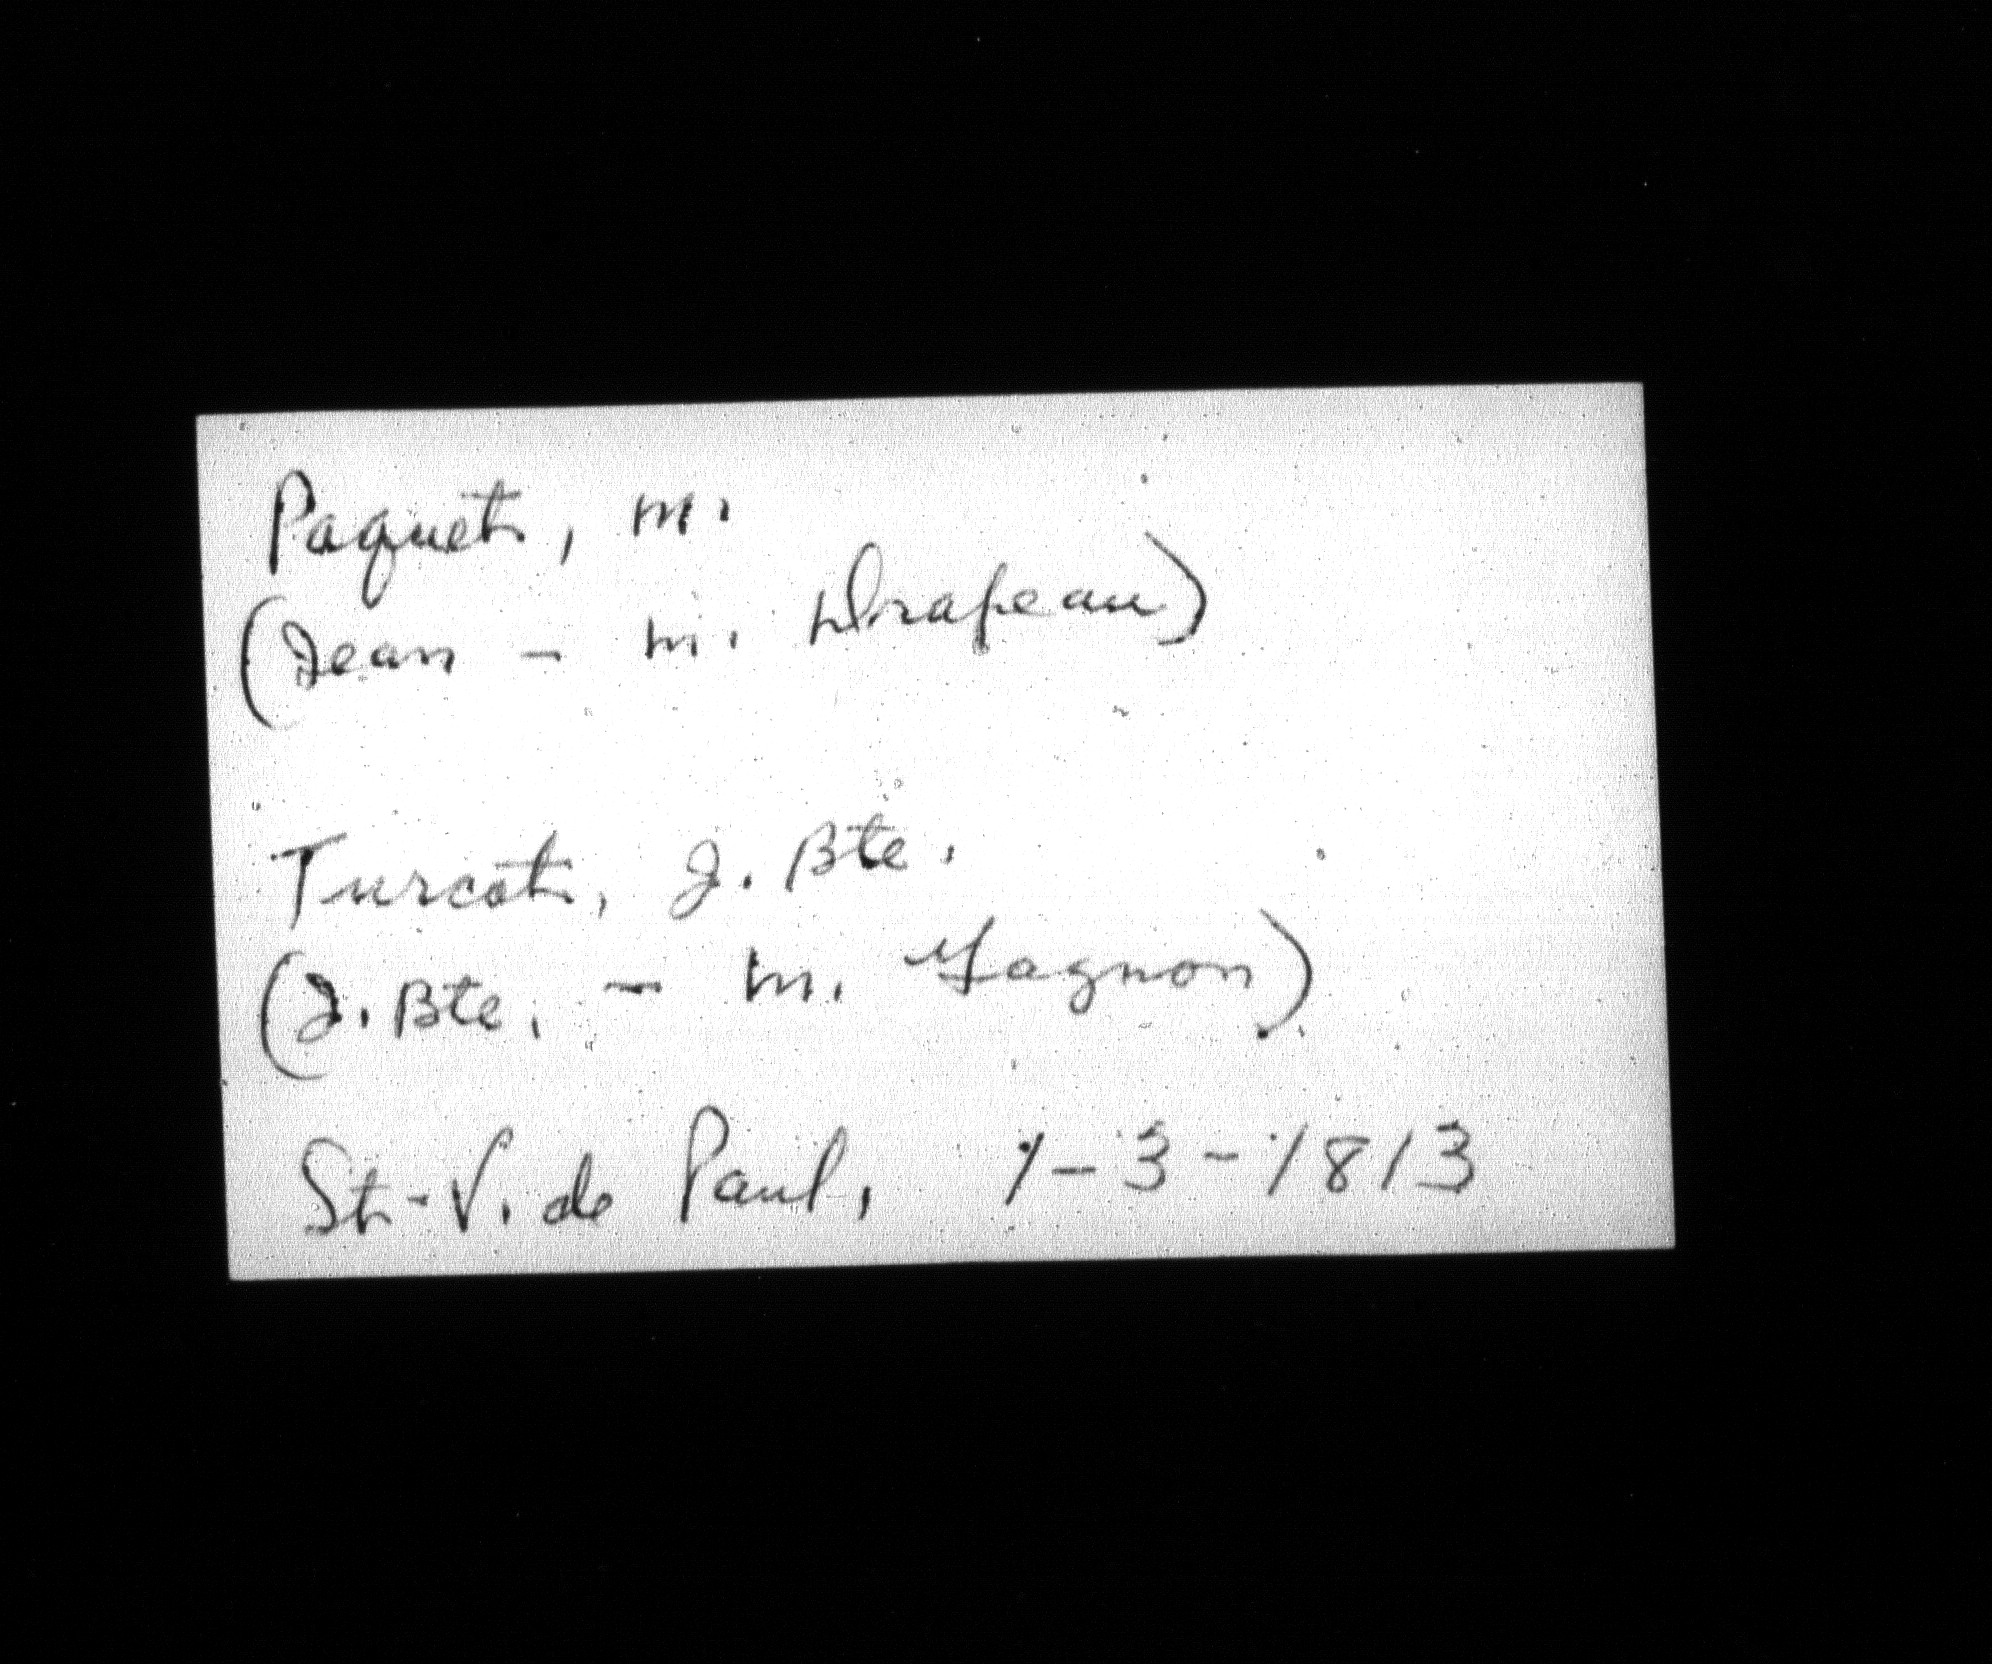 Paquet, M.
(Jean - M. Drapeau)
Turcot, J. Bte.
(J. Bte. - M. Gagnon)
St-V. de Paul, 1-3-1813